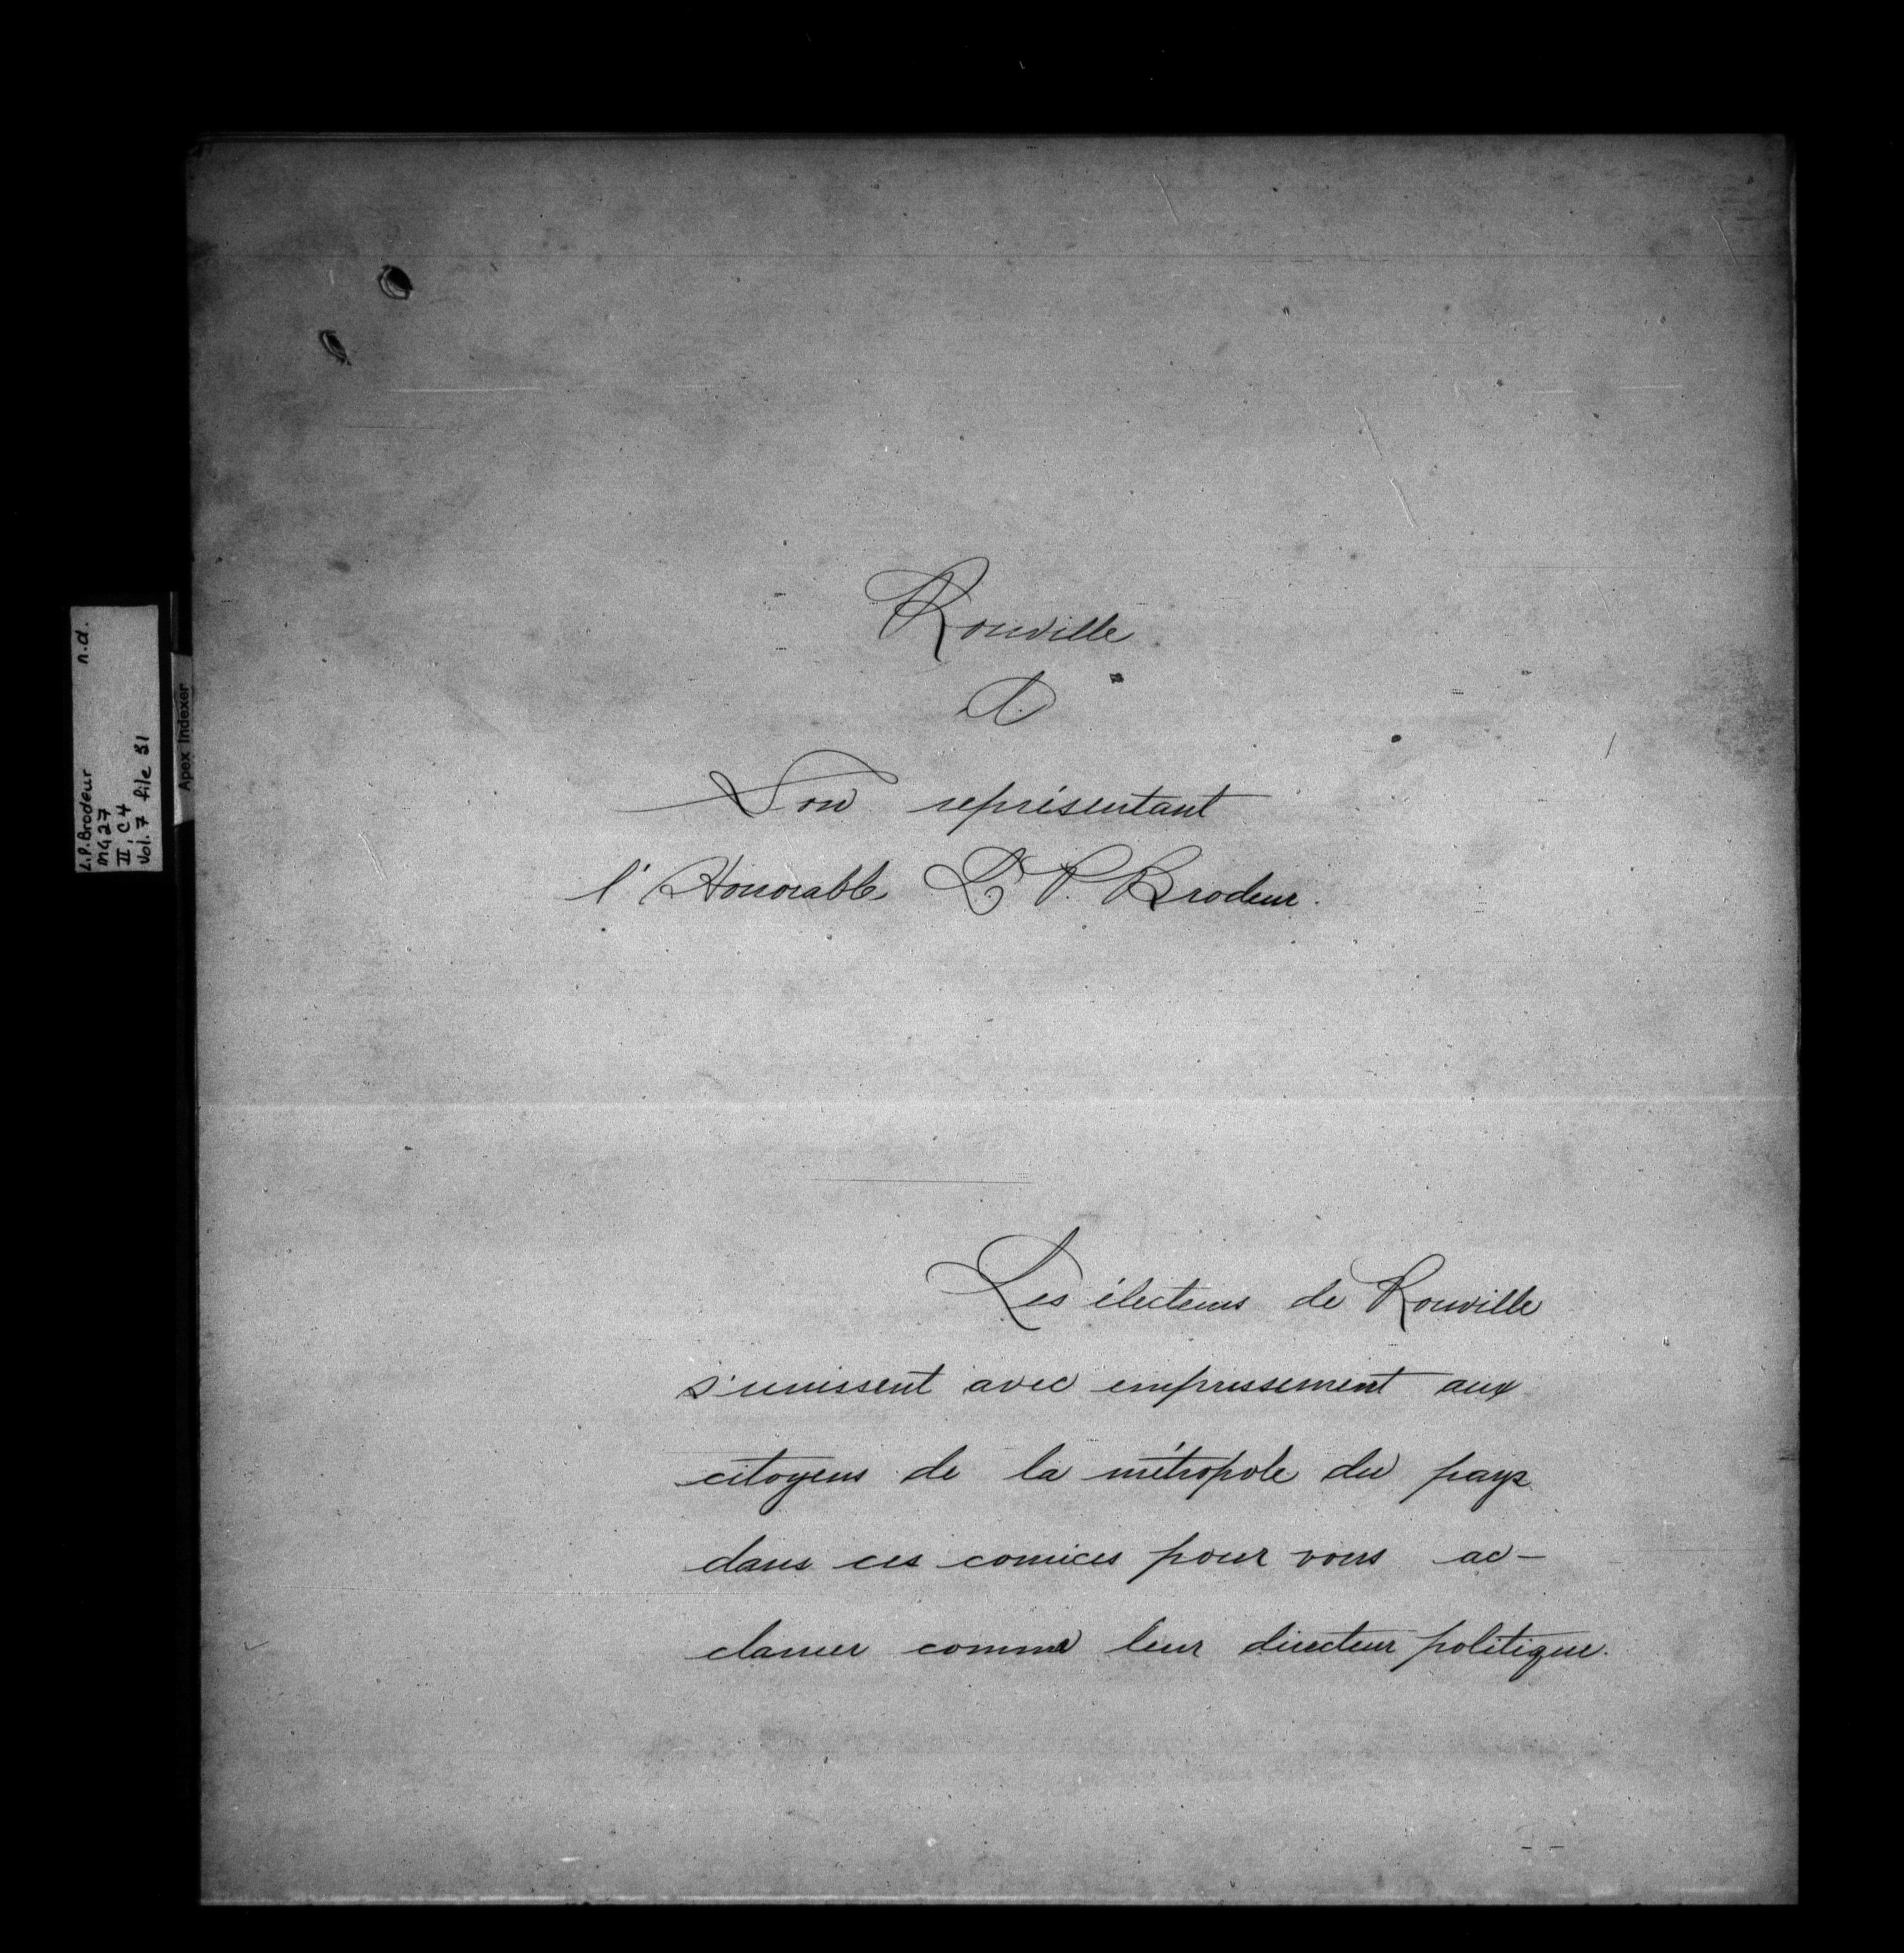 Rouville
A
Son représentant
l'Honorable L. P. Brodeur.
Les électeurs de Rouville
s'unissent avec empressement aux
citoyens de la métropole du pays
dans ces comices pour vous ac-
clamer comme leur directeur politique.
L.P. Brodeur n.d.
MG 27
II, C4
Vol. 7 file 31
Apex Indexer